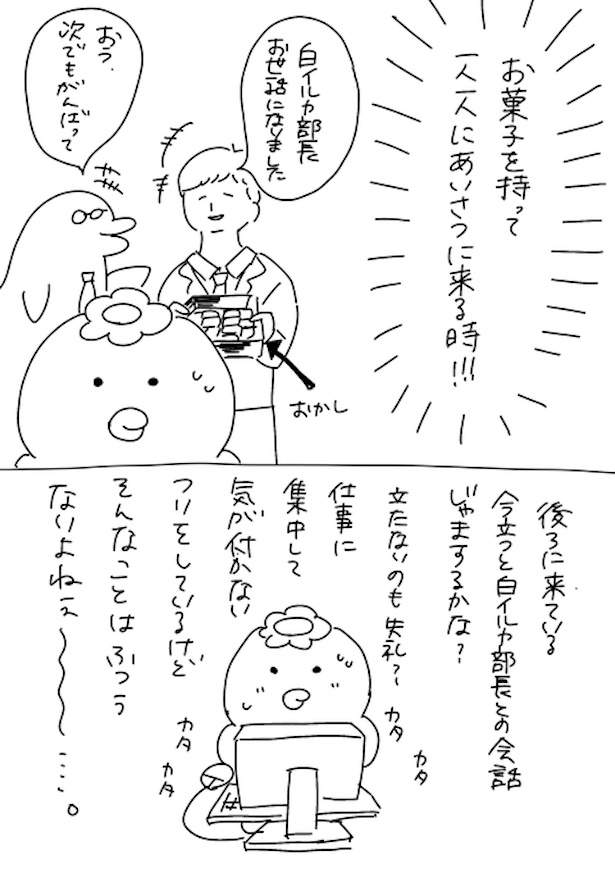 お菓子を持って
一人一人にあいさつに来る時!!!
白イルカ部長
お世話になりました
おう、
次でもがんばって
おかし
後ろに来ている
今立つと白イルカ部長との会話
じゃまするかな?
立たないのも失礼?~
仕事に
集中して
気が付かない
フリをしているけど
そんなことはふつう
ないよねぇ~~~....。
カタ
カタ
カタ
カタ